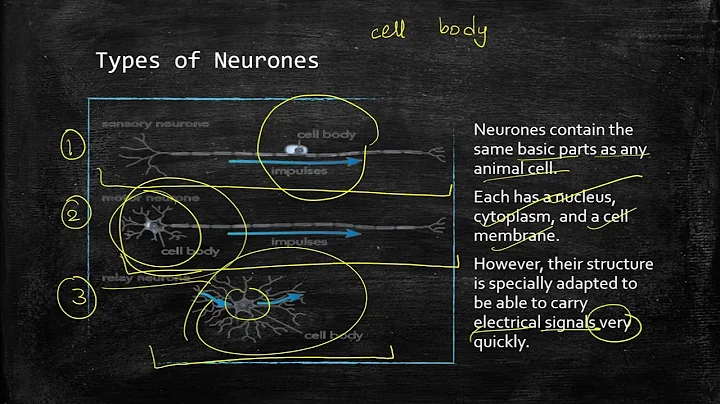 cell body
Types of Neurones
1
sensory neurone
cell body
impulses
2
motor neurone
cell body
impulses
3
relay neurone
cell body
Neurones contain the
same basic parts as any
animal cell.
Each has a nucleus,
cytoplasm, and a cell
membrane.
However, their structure
is specially adapted to
be able to carry
electrical signals very
quickly.